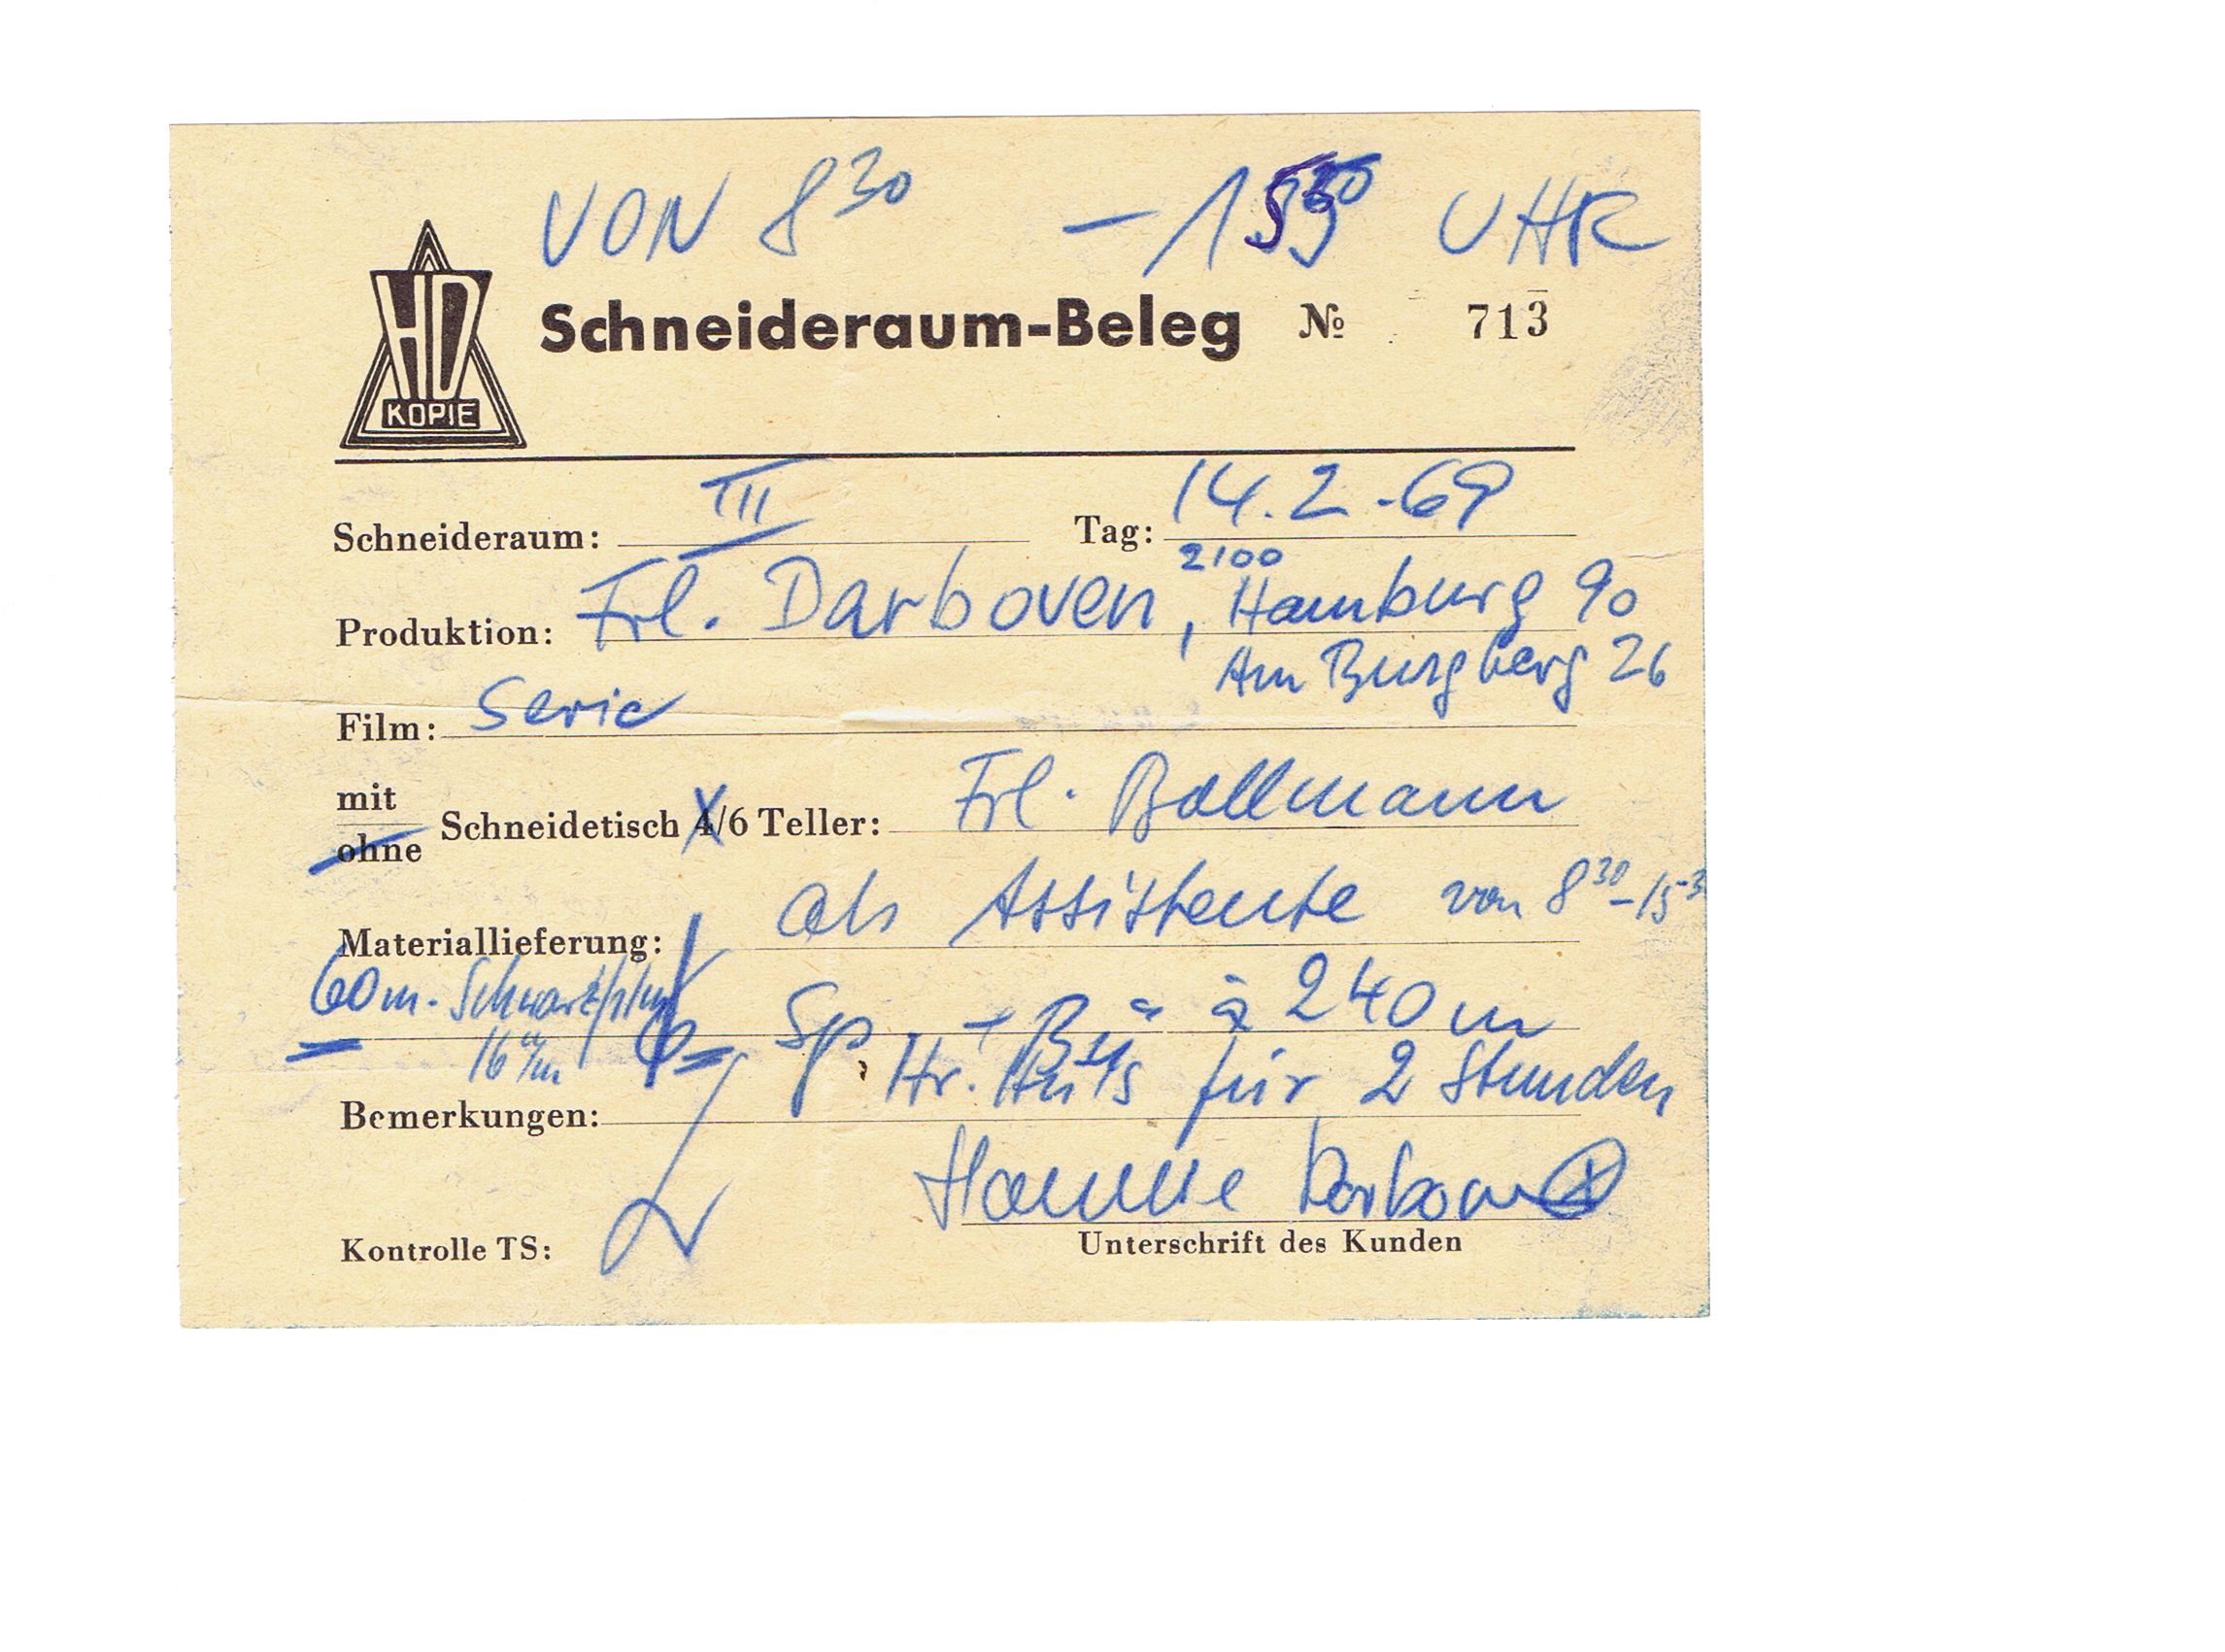 VON 8 30 – 15 30 UHR
HD
KOPIE
Schneideraum-Beleg № 713
Schneideraum: III Tag: 14.2.69
Produktion: Frl. Darboven, 2100 Hamburg 90
Am Burgberg 26
Film: Serie
mit
ohne Schneidetisch 4/6 Teller: Frl. Bollmann
als Assistente von 8 30 – 15 3
Materiallieferung:
60 m. Schwarzfilm Sp. + B à 240 m
16 m/m Hr. für 2 Stunden
Bemerkungen:
Hanne Darboven
Kontrolle TS: Unterschrift des Kunden